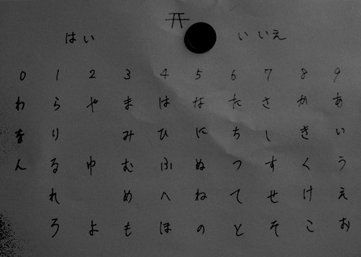 はい いいえ
0 1 2 3 4 5 6 7 8 9
わ ら や ま は な た さ か あ
を り み ひ に ち し き い
ん る ゆ む ふ ぬ つ す く う
れ め へ ね て せ け え
ろ よ も ほ の と そ こ お